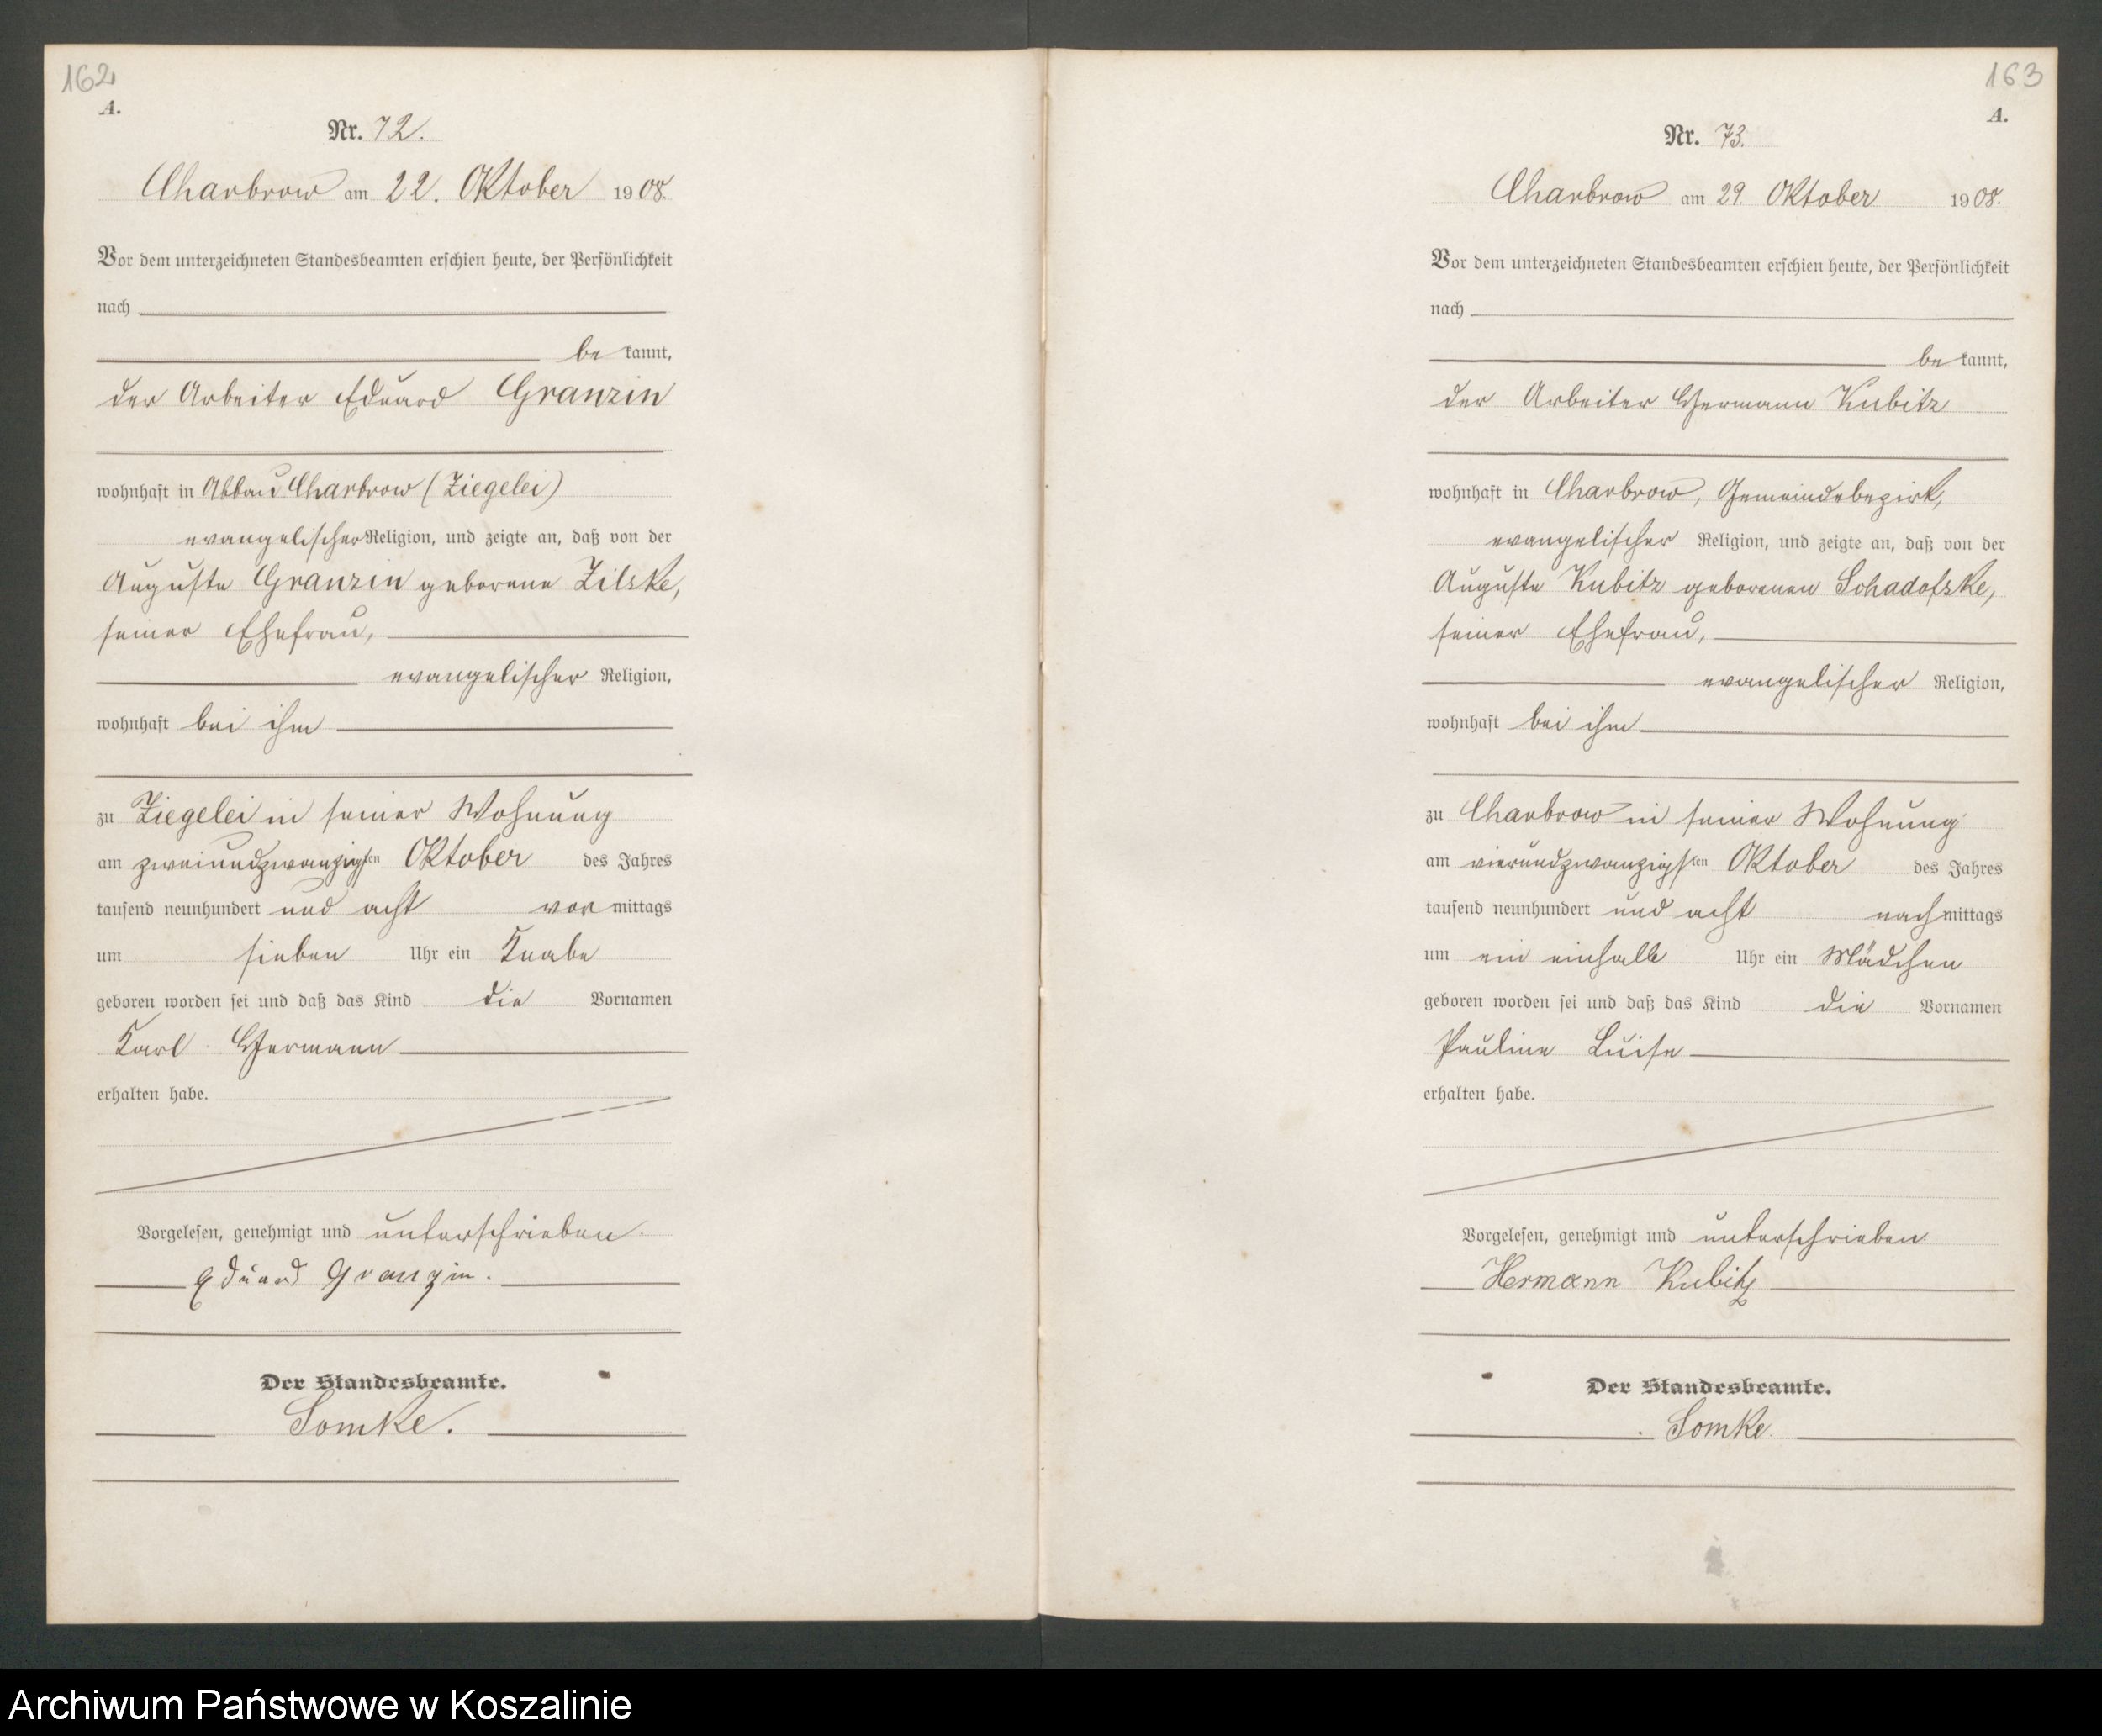 162
A.
Nr. 72.
Charbrow am 22. Oktober 1908.
Vor dem unterzeichneten Standesbeamten erschien heute, der Persönlichkeit
nach
bekannt,
der Arbeiter Eduard Granzin
wohnhaft in Abbau Charbrow (Ziegelei)
evangelischer Religion, und zeigte an, daß von der
Auguste Granzin geborene Zilske,
seiner Ehefrau,
evangelischer Religion,
wohnhaft bei ihm
zu Ziegelei in seiner Wohnung
am zweiundzwanzigsten Oktober des Jahres
tausend neunhundert und acht vormittags
um sieben Uhr ein Knabe
geboren worden sei und daß das Kind die Vornamen
Karl Hermann
erhalten habe.
Vorgelesen, genehmigt und unterschrieben.
Eduard Granzin.
Der Standesbeamte.
Somke.
163
A.
Nr. 73.
Charbrow am 29. Oktober 1908.
Vor dem unterzeichneten Standesbeamten erschien heute, der Persönlichkeit
nach
bekannt,
der Arbeiter Hermann Kubitz
wohnhaft in Charbrow, Gemeindebezirk,
evangelischer Religion, und zeigte an, daß von der
Auguste Kubitz geborenen Schadofske,
seiner Ehefrau,
evangelischer Religion,
wohnhaft bei ihm
zu Charbrow in seiner Wohnung
am vierundzwanzigsten Oktober des Jahres
tausend neunhundert und acht nachmittags
um ein einhalb Uhr ein Mädchen
geboren worden sei und daß das Kind die Vornamen
Pauline Luise
erhalten habe.
Vorgelesen, genehmigt und unterschrieben.
Hermann Kubitz
Der Standesbeamte.
Somke.
Archiwum Państwowe w Koszalinie